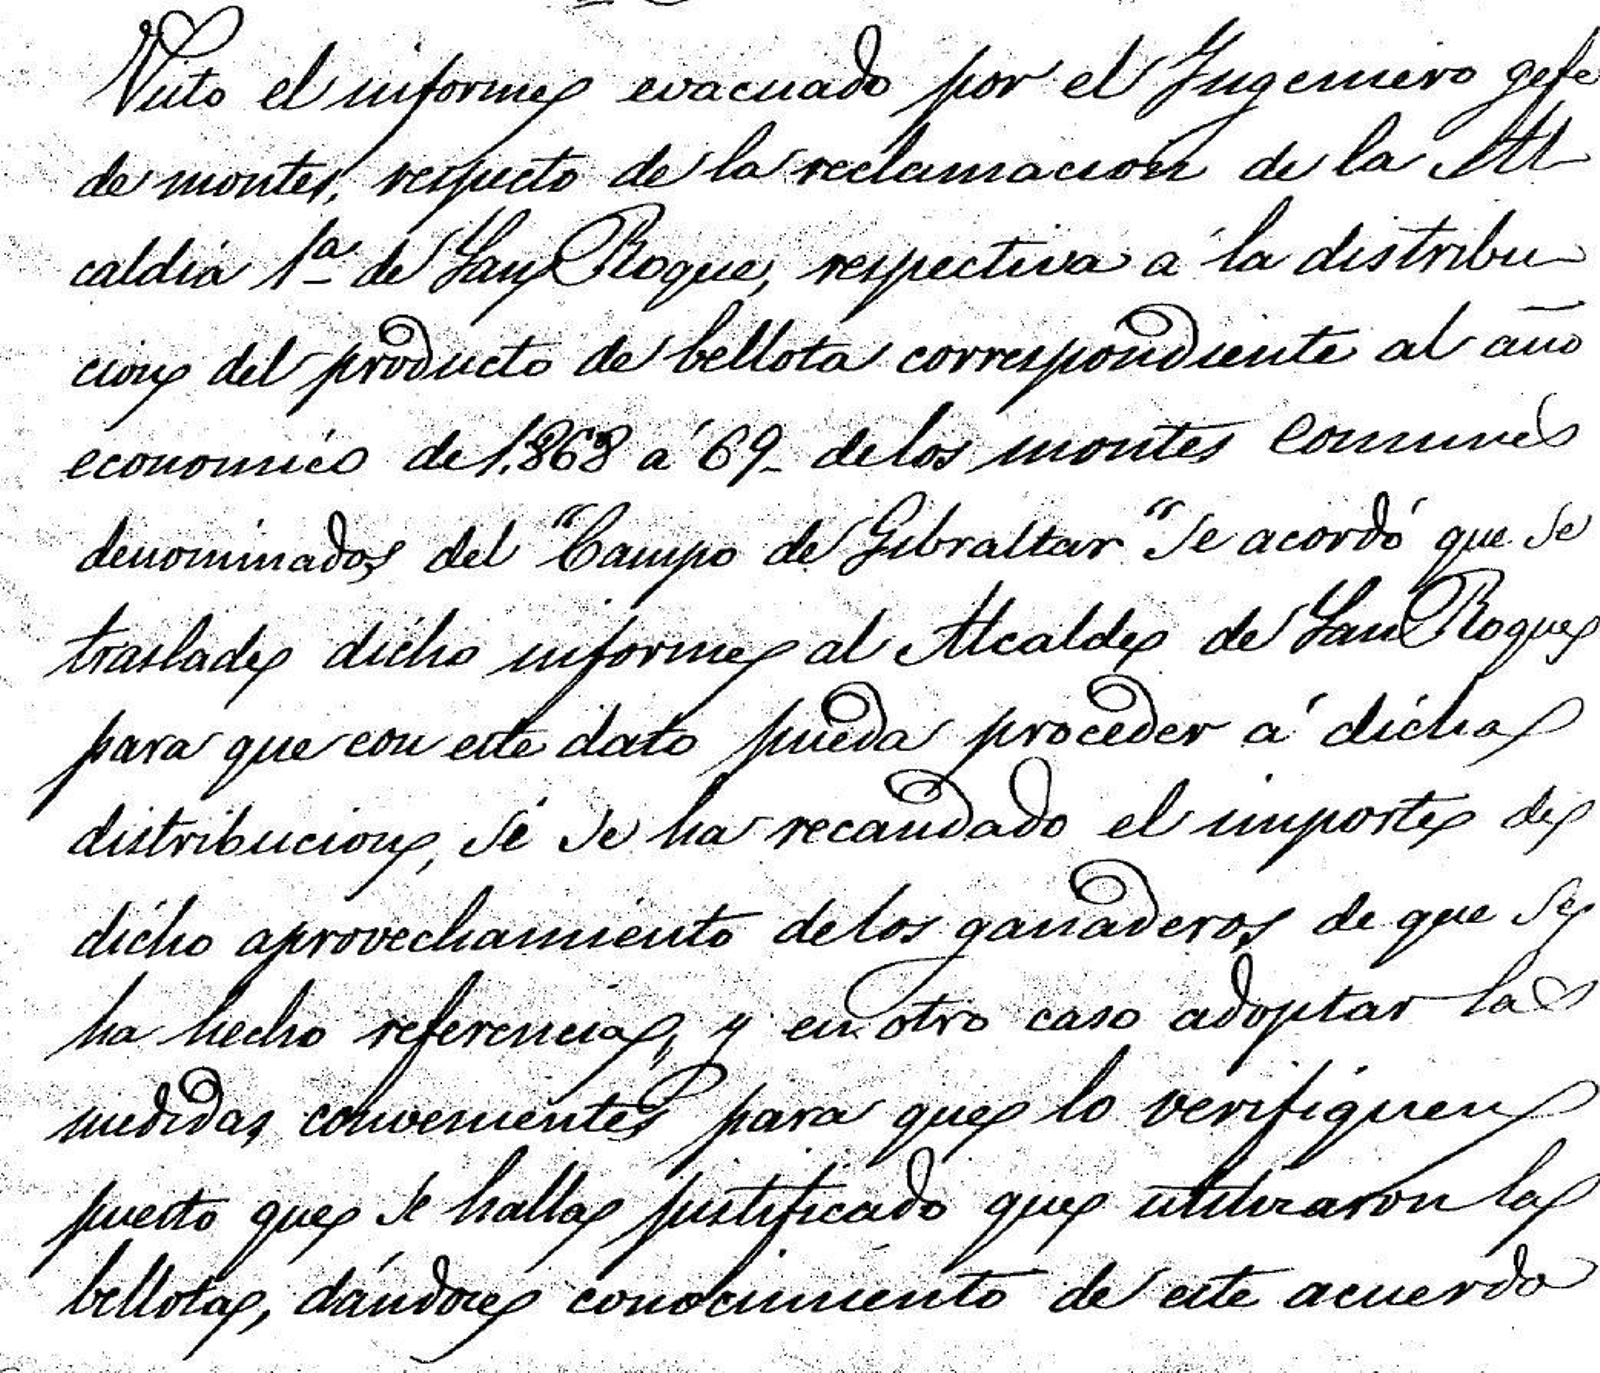 Visto el informe evacuado por el Ingeniero gefe
de montes, respecto de la reclamacion de la Al
caldia 1ª de San Roque, respectiva á la distribu
cion del producto de bellota correspondiente al año
economico de 1.868 á 69_ de los montes comunes
denominados del "Campo de Gibraltar" se acordó que se
traslade dicho informe al Alcalde de San Roque
para que con este dato pueda proceder á dicha
distribucion, si se ha recaudado el importe de
dicho aprovechamiento de los ganaderos de que se
ha hecho referencia, y en otro caso adoptar las
medidas convenientes para que lo verifiquen
puesto que se halla justificado que utilizaron la
bellota, dándose conocimiento de este acuerdo